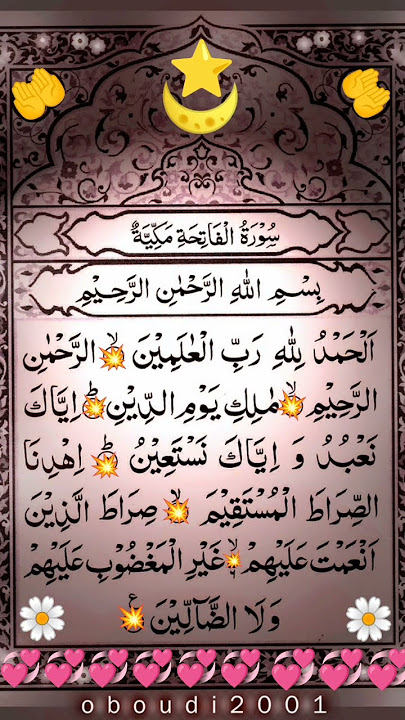 سُوْرَةُ الْفَاتِحَةِ مَكِّيَّةٌ
بِسْمِ اللهِ الرَّحْمٰنِ الرَّحِيْمِ
اَلْحَمْدُ لِلّٰهِ رَبِّ الْعٰلَمِيْنَ ۙ الرَّحْمٰنِ
الرَّحِيْمِ ۙ مٰلِكِ يَوْمِ الدِّيْنِ ؕ اِيَّاكَ
نَعْبُدُ وَ اِيَّاكَ نَسْتَعِيْنُ ؕ اِهْدِنَا
الصِّرَاطَ الْمُسْتَقِيْمَ ۙ صِرَاطَ الَّذِيْنَ
اَنْعَمْتَ عَلَيْهِمْ ۙ غَيْرِ الْمَغْضُوْبِ عَلَيْهِمْ
وَلَا الضَّآلِّيْنَ ع
oboudi2001